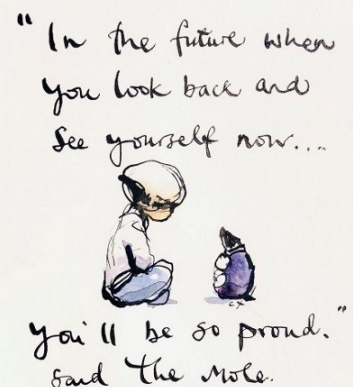 "In the future when
you look back and
See yourself now....
you'll be so proud."
said the Mole.